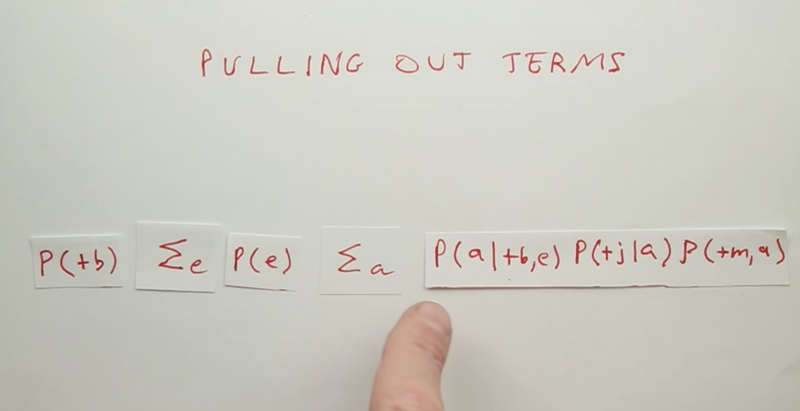 PULLING OUT TERMS
P(+b) Σe P(e) Σa P(a|+b,e) P(+j|a) P(+m,a)